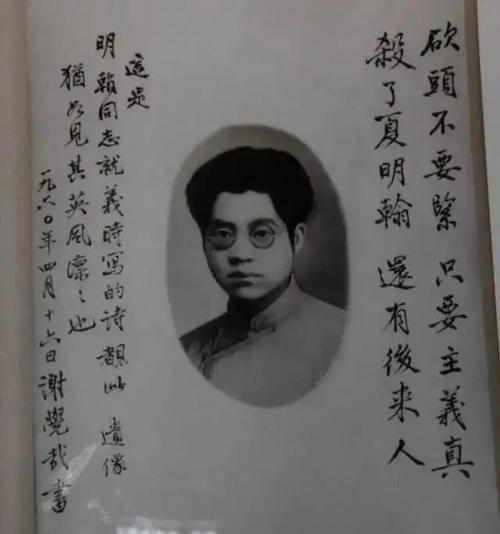 砍頭不要緊 只要主義真
殺了夏明翰 還有後來人
這是
明翰同志就義時寫的詩 覩此 遺像
猶如見其英風凛〻也
一九六〇年四月十六日 謝覺哉書